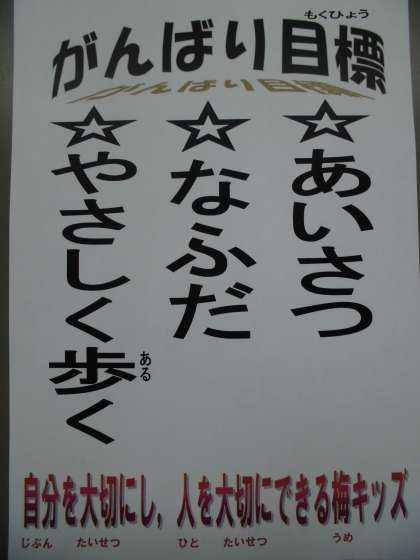 もくひょう
がんばり目標
☆あいさつ
☆なふだ
☆やさしく歩く
ある
自分を大切にし，人を大切にできる梅キッズ
じぶん たいせつ ひと たいせつ うめ